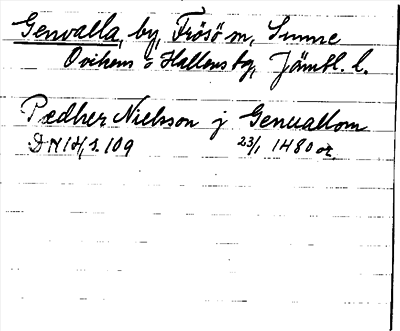 Genvalla, by, Frösö sn, Sunne
Ovikens o Hallens tg, Jämtl. l.
Pædher Nielsson j Genuallom
DN 14/1 s. 109 23/1 1480 or.